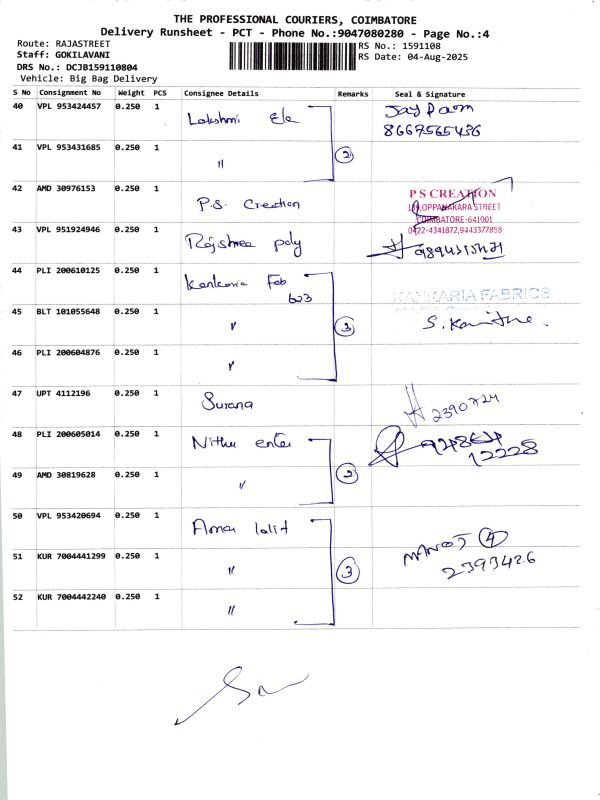 THE PROFESSIONAL COURIERS, COIMBATORE
Delivery Runsheet - PCT - Phone No.:9047080280 - Page No.:4
Route: RAJASTREET
RS No.: 1591108
Staff: GOKILAVANI
RS Date: 04-Aug-2025
DRS No.: DCJB159110804
Vehicle: Big Bag Delivery
S No Consignment No Weight PCS Consignee Details Remarks Seal & Signature
40 VPL 953424457 0.250 1 Lakshmi Ele
8667565436
41 VPL 953431685 0.250 1 〃 2
42 AMD 30976153 0.250 1 P.S. Creation
P S CREATION
139,OPPANAKARA STREET
COIMBATORE-641001
0422-4341872,9443377858
43 VPL 951924946 0.250 1 Rajshree poly
44 PLI 200610125 0.250 1 Kankaria Fab
623
KANKARIA FABRICS
45 BLT 101055648 0.250 1 〃 3
46 PLI 200604876 0.250 1 〃
47 UPT 4112196 0.250 1 Surana 2390724
48 PLI 200605014 0.250 1 Nithu enter 94864
12228
49 AMD 30819628 0.250 1 〃 2
50 VPL 953420694 0.250 1 Amar lalit
MANOJ 4
51 KUR 7004441299 0.250 1 〃 3 2393426
52 KUR 7004442240 0.250 1 〃